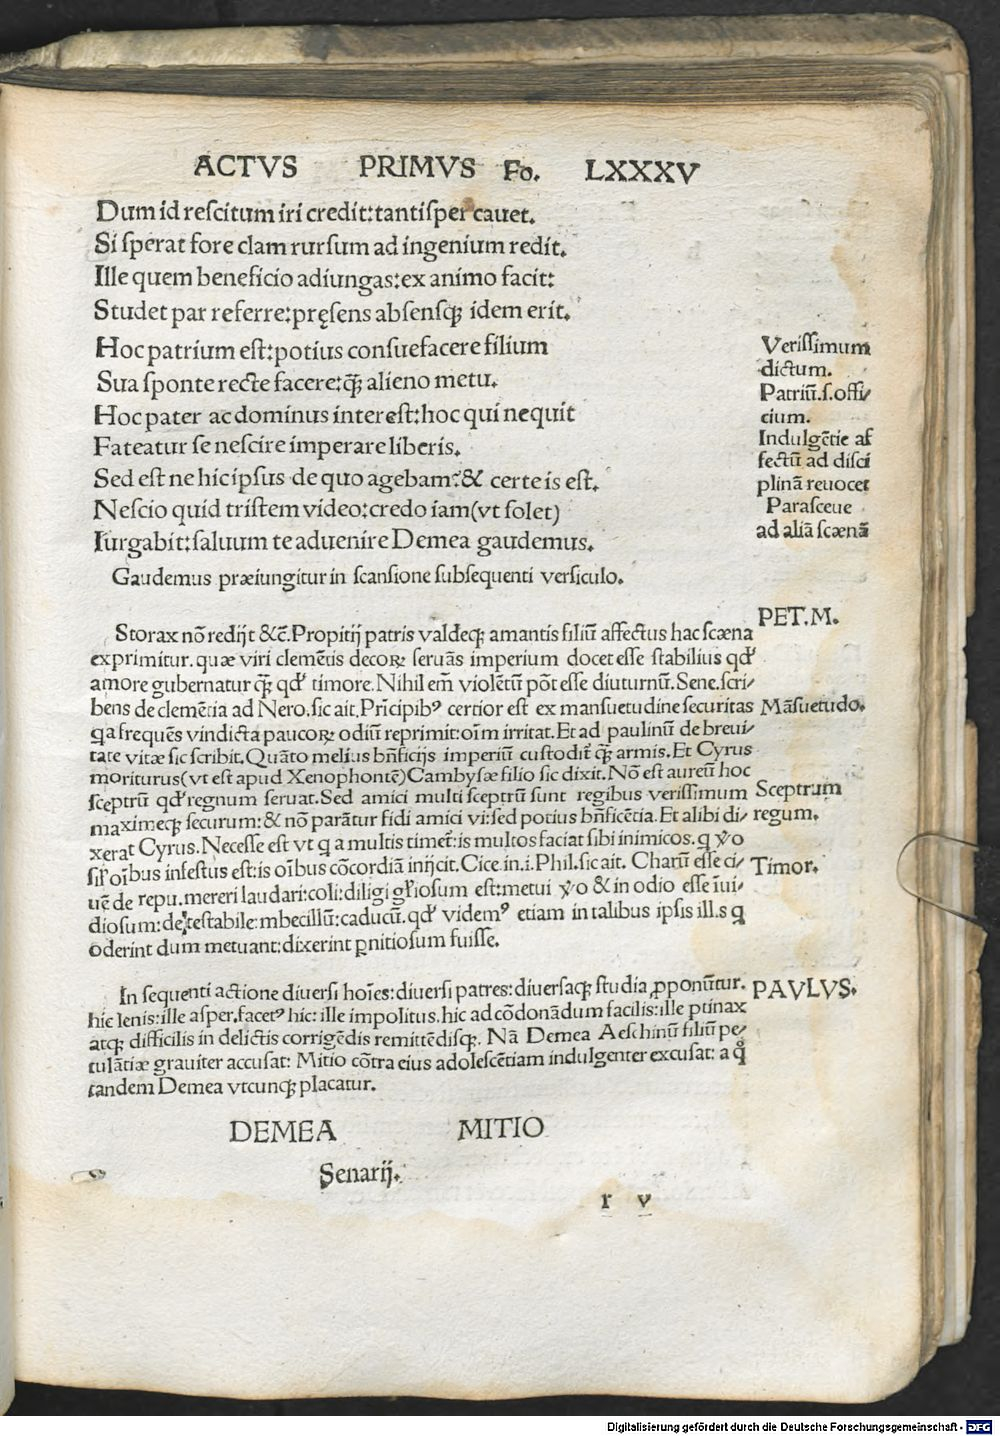 ACTVS PRIMVS Fo. LXXXV
Dum id reſcitum iri credit: tantiſper cauet.
Si ſperat fore clam rurſum ad ingenium redit.
Ille quem beneficio adiungas: ex animo facit:
Studet par referre: pręſens abſensq́ꝫ idem erit.
Hoc patrium eſt: potius conſuefacere filium
Sua ſponte recte facere: q̃ꝫ alieno metu.
Hoc pater ac dominus intereſt: hoc qui nequit
Fateatur ſe neſcire imperare liberis.
Sed eſt ne hic ipſus de quo agebam? & certe is eſt.
Neſcio quid triſtem video: credo iam (vt ſolet)
Iurgabit: ſaluum te aduenire Demea gaudemus.
Gaudemus præiungitur in ſcanſione ſubſequenti verſiculo.
Veriſſimum
dictum.
Patriũ.ſ.offi/
cium.
Indulgẽtie af
fectũ ad diſci
plinã reuocet
Paraſceue
ad aliã ſcænã
PET. M.
Storax nõ redijt &c̃. Propitij patris valdeq́ꝫ amantis filiũ affectus hac ſcæna
exprimitur. quæ viri clemẽtis decoꝝ ſeruãs imperium docet eſſe ſtabilius qď
amore gubernatur q̃ꝫ qď timore. Nihil em̃ violẽtũ põt eſſe diuturnũ. Sene. ſcri/
bens de clemẽtia ad Nero. ſic ait. Prĩcipibꝰ certior eſt ex manſuetudine ſecuritas
Mãſuetudo.
ꝗa frequẽs vindicta paucoꝝ odiũ reprimit: oĩm irritat. Et ad paulinũ de breui/
tate vitæ ſic ſcribit. Quãto melius bñficijs imperiũ cuſtodit̃ q̃ꝫ armis. Et Cyrus
moriturus (vt eſt apud Xenophontẽ) Cambyſæ filio ſic dixit. Nõ eſt aureũ hoc
ſceptrũ qď regnum ſeruat. Sed amici multi ſceptrũ ſunt regibus veriſſimum
Sceptrum
maximeq́ꝫ ſecurum: & nõ parãtur fidi amici vi: ſed potius bñficẽtia. Et alibi di/
regum.
xerat Cyrus. Neceſſe eſt vt ꝗ a multis timet̃: is multos faciat ſibi inimicos. ꝗ v̊o
ſiľ oĩbus infeſtus eſt: is oĩbus cõcordiã inijcit. Cice. in. i. Phil. ſic ait. Charũ eſſe ci/
Timor.
uẽ de repu. mereri laudari: coli: diligi gľioſum eſt: metui v̊o & in odio eſſe ĩui/
dioſum: deteſtabile: mbecillũ: caducũ. qď videmꝰ etiam in talibus ipſis ill. s ꝗ
oderint dum metuant: dixerint ꝑnitioſum fuiſſe.
PAVLVS.
In ſequenti actione diuerſi hoĩes: diuerſi patres: diuerſaq́ꝫ ſtudia ꝓponũtur.
hic lenis: ille aſper. facetꝰ hic: ille impolitus. hic ad cõdonãdum facilis: ille ꝑtinax
atq́ꝫ difficilis in delictis corrigẽdis remittẽdisq́ꝫ. Nã Demea Aeſchinũ filiũ pe/
tulãtiæ grauiter accuſat: Mitio cõtra eius adoleſcẽtiam indulgenter excuſat: a q̊
tandem Demea vtcunq́ꝫ placatur.
DEMEA MITIO
Senarij.
r v
Digitalisierung gefördert durch die Deutsche Forschungsgemeinschaft - DFG